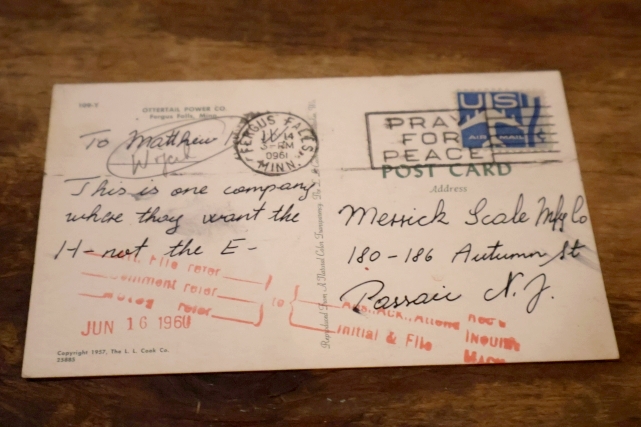 109-S
OTTERTAIL POWER CO.
Fergus Falls, Minn.
To Matthew
FERGUS FALLS
14
PM
1960
MINN.
PRAY
FOR
PEACE
US
AIR MAIL
POST CARD
Address
This is one company
where they want the
H- not the E-
Merrick Scale Mfg Co
180-186 Autumn St
Passaic N.J.
File refer
Comment refer
refer
to
Initial & File
JUN 16 1960
Copyright 1957, The L. L. Cook Co.
Reproduced From A Natural Color Transparency